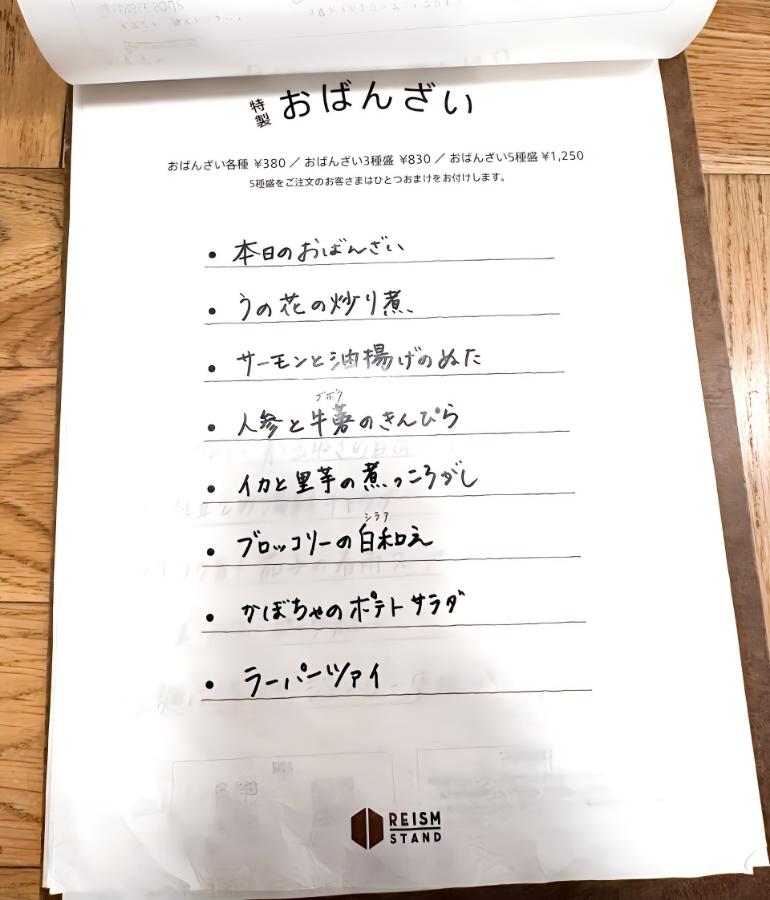 特製 おばんざい
おばんざい各種 ¥380 / おばんざい3種盛 ¥830 / おばんざい5種盛 ¥1,250
5種盛をご注文のお客さまはひとつおまけをお付けします。
• 本日のおばんざい
• うの花の炒り煮
• サーモンと油揚げのぬた
ゴボウ
• 人参と牛蒡のきんぴら
• イカと里芋の煮っころがし
シラア
• ブロッコリーの白和え
• かぼちゃのポテトサラダ
• ラーパーツァイ
REISM
STAND